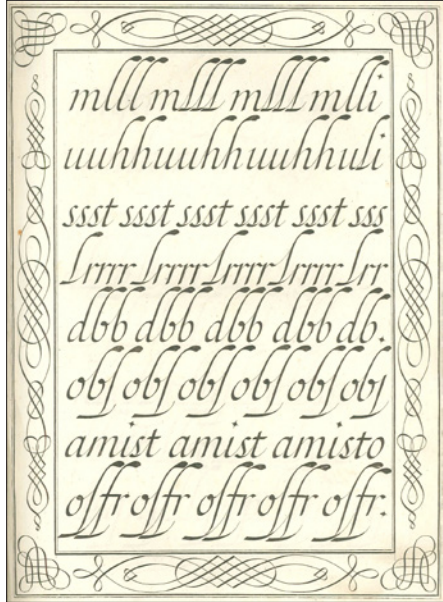 mlll mlll mlll mlli
uuhhuuhhuuhhuli
ssst ssst ssst ssst ssst sss
dbb dbb dbb dbb db.
obſ obſ obſ obſ obſ obj
amist amist amisto
offr offr offr offr offr: